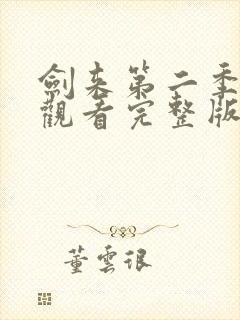 劍来第二季
觀看完整版
董雲很